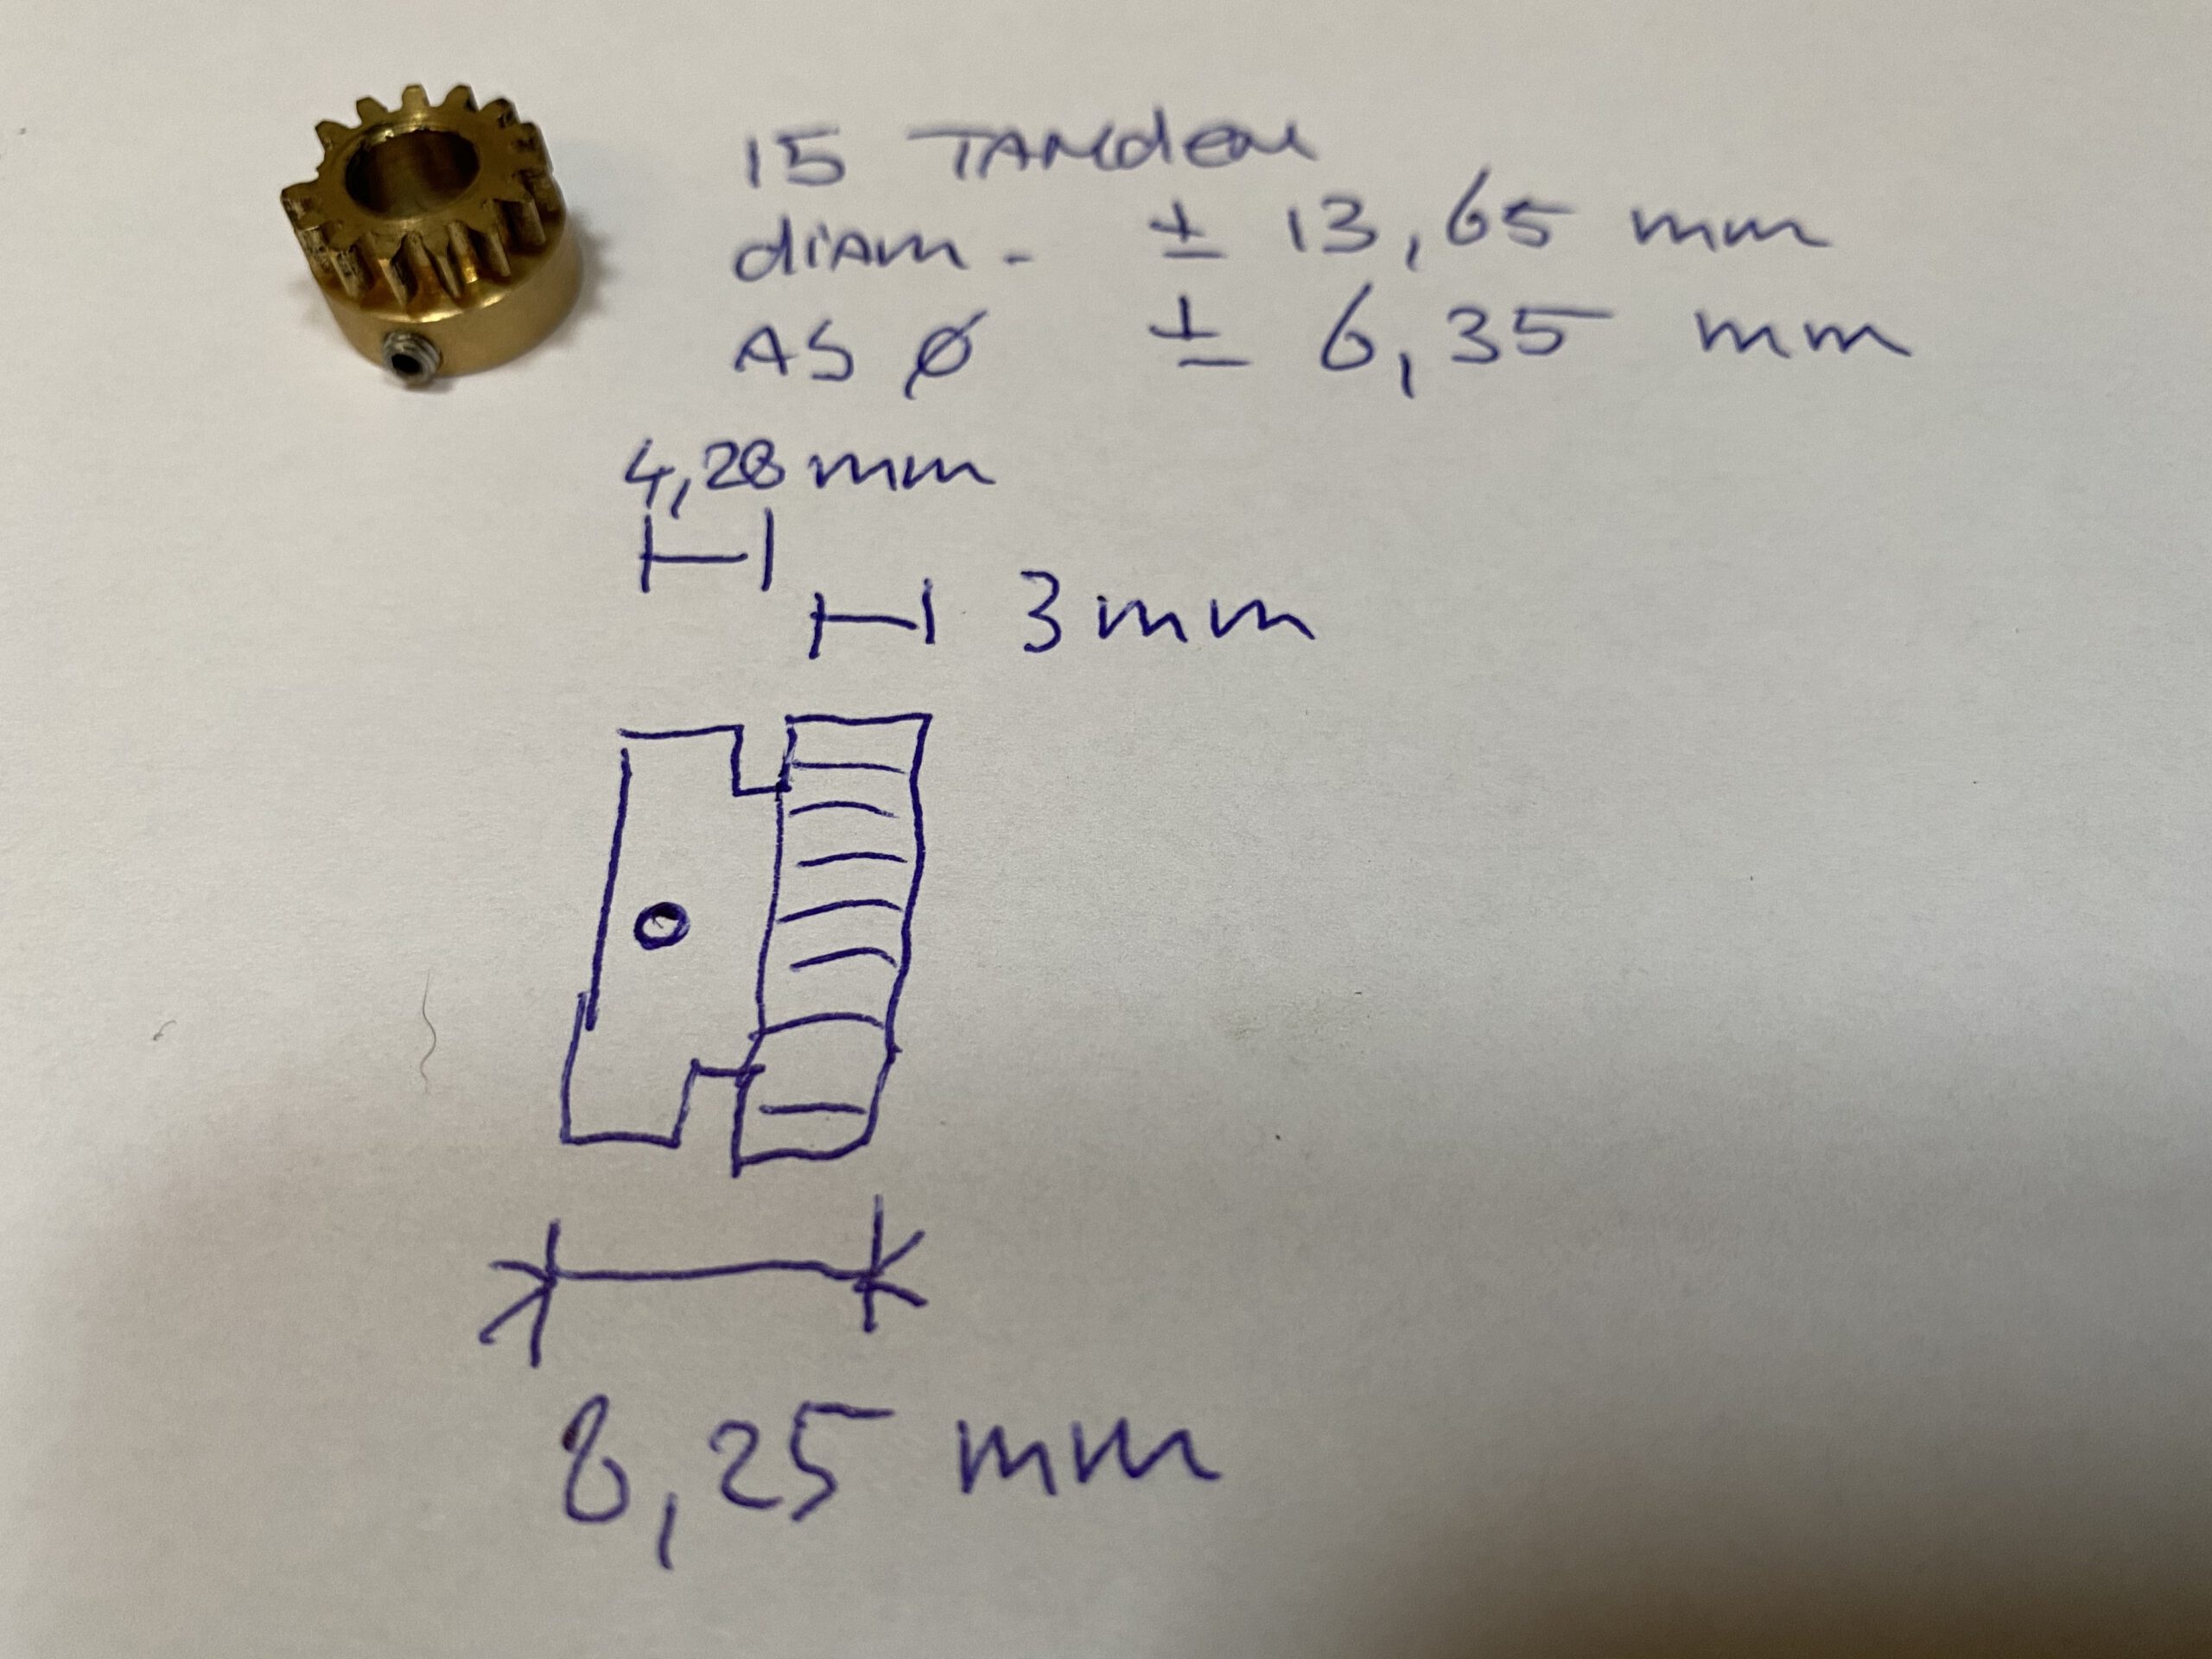 15 TANden
diam. ± 13,65 mm
AS ø ± 6,35 mm
4,28 mm
3 mm
8,25 mm